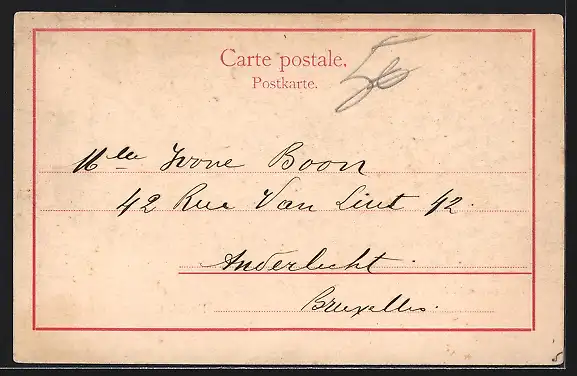 Carte postale.
Postkarte.
Mlle Ivone Boon
42 Rue Van Lint 42.
Anderlecht
Bruxelles.